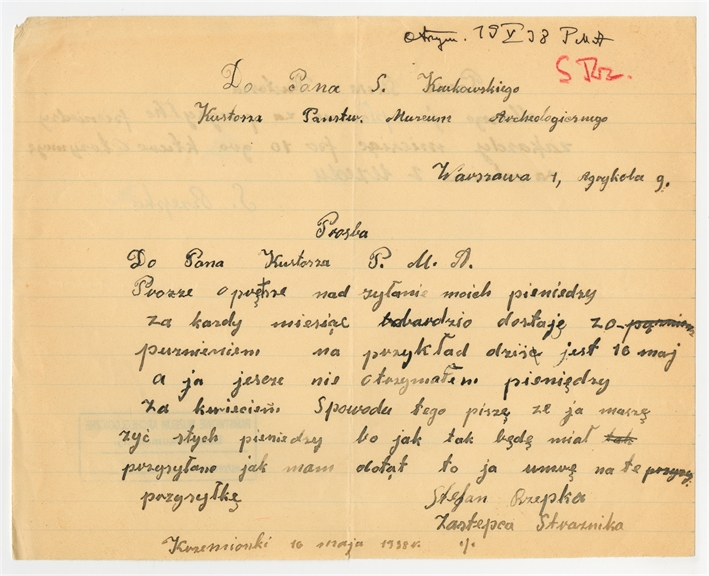 Otrzym. 19 V 38 PMA
S Rz.
Do Pana S. Krukowskiego
Kustosza Państw. Museum Archeologicznego
Warszawa 1, Agrykola 9.
Prosba
Do Pana Kustosza P. M. A.
Prozze o prętsze nad zyłanie moich pieniedzy
za kardy miesiąc bardzio dostaję zo
puznieniem na przykład dziśę jest 16 maj
a ja jescze nie otrzymałem pieniędzy
za kwiecień. Spowodu tego piszę ze ja muszę
zyć stych pieniedzy bo jak tak będę miał
przysyłane jak mam dotąt to ja umrę na te
przysyłkę Stefan Rzepka
Zastepca Straznika
Krzemionki 16 maja 1938 r.